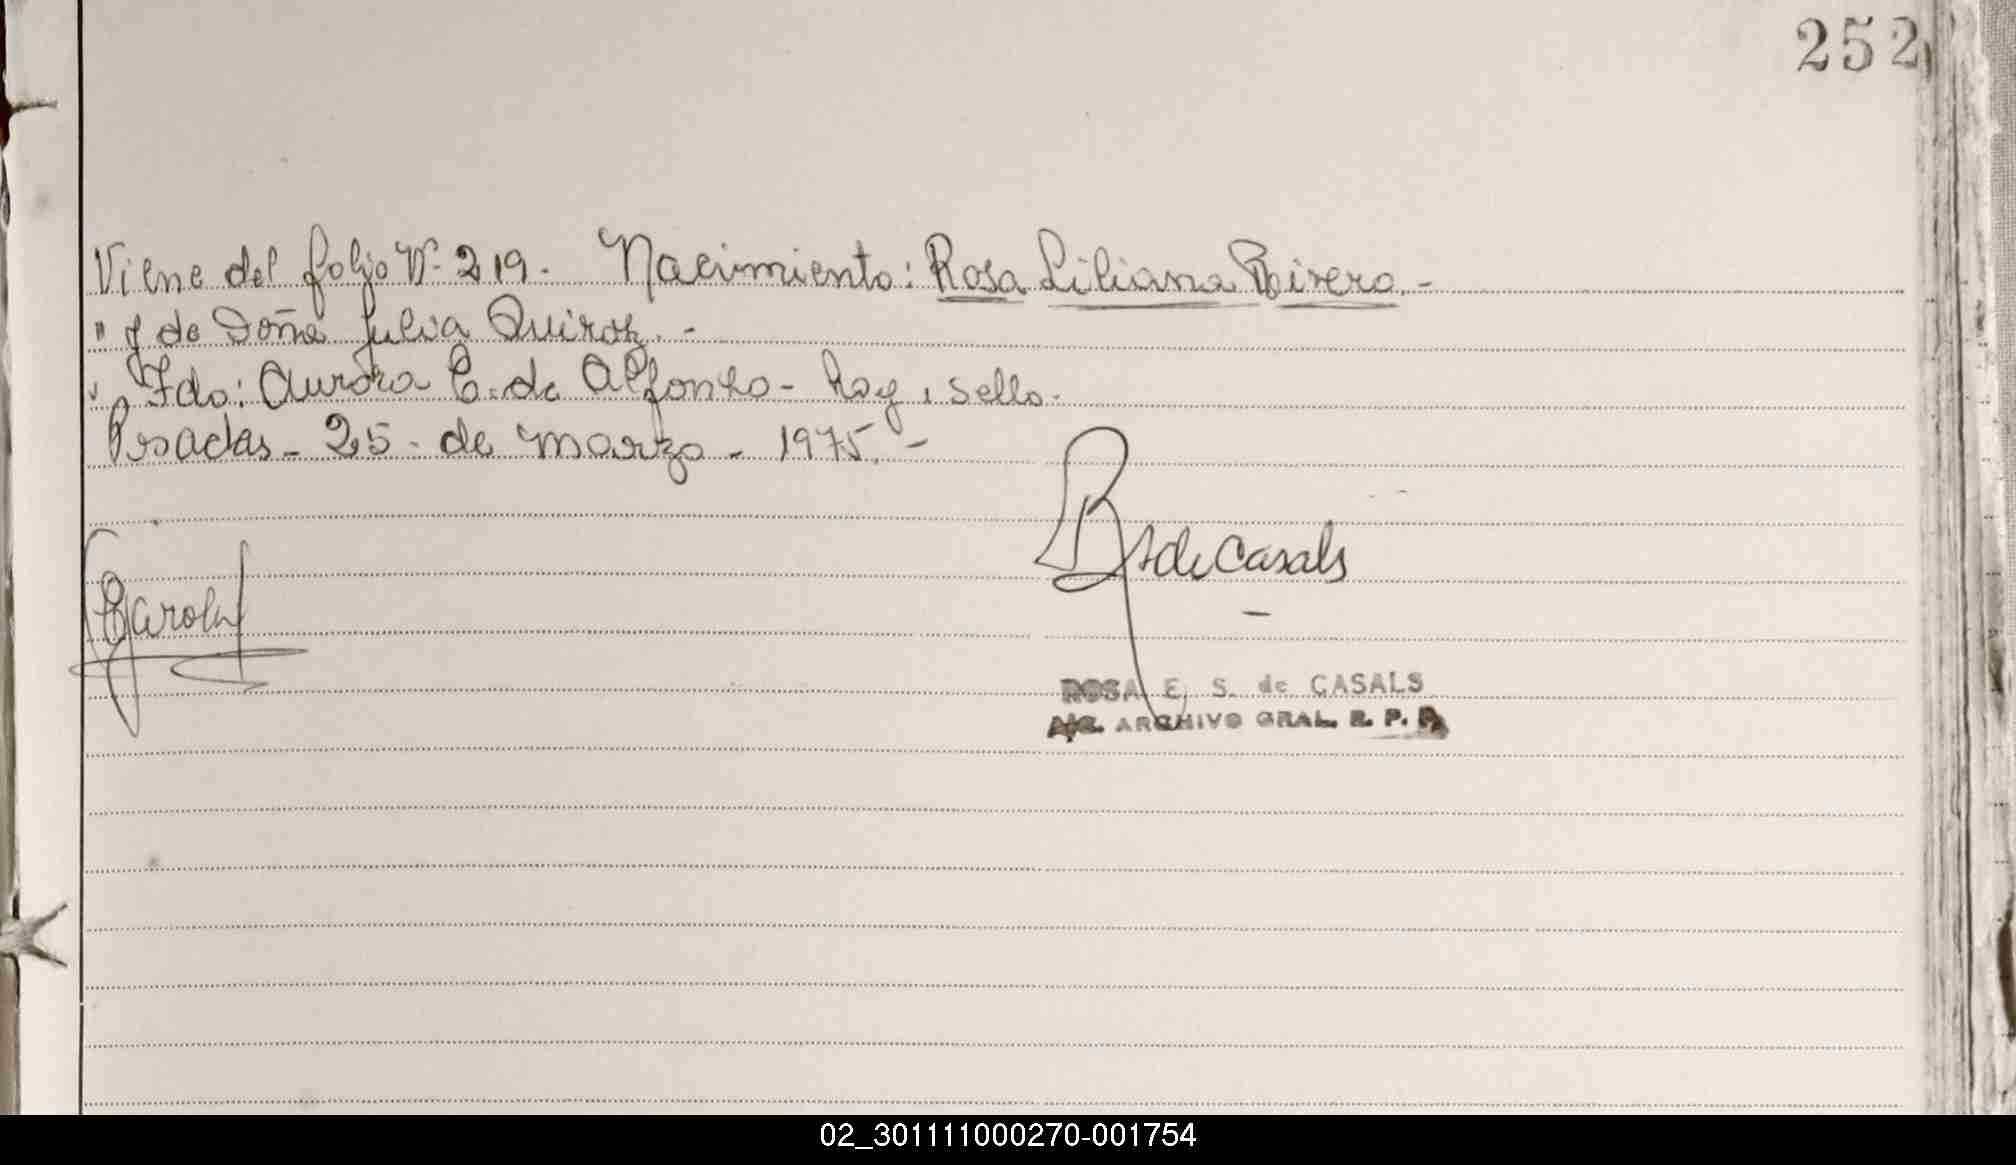 252
Viene del folio Nº 219. Nacimiento: Rosa Liliana Rivero.-
" y de Doña Julia Quiroz.-
" Fdo: Aurora C. de Alfonso - Hay, sello.
Posadas - 25 - de marzo - 1975.-
de Casals
ROSA E. S. de CASALS
A/C. ARCHIVO GRAL. R. P. P.
02_301111000270-001754